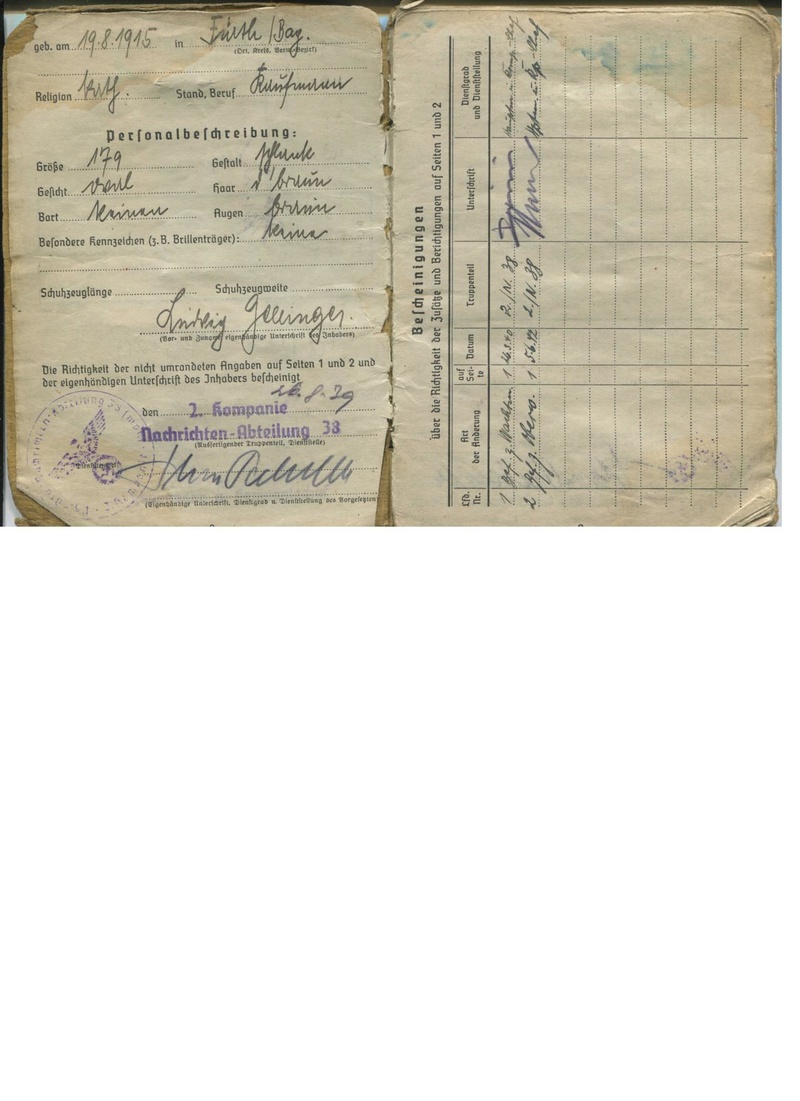 geb. am 19.8.1915 in Fürth /Bay.
(Ort, Kreis, Verw.-Bezirk)
Religion kath. Stand, Beruf Kaufmann
Personalbeschreibung:
Größe 179 Gestalt schlank
Gesicht oval Haar d'braun
Bart keinen Augen braun
Besondere Kennzeichen (z.B. Brillenträger): keine
Schuhzeuglänge Schuhzeugweite
Ludwig
(Vor- und Zuname, eigenhändige Unterschrift des Inhabers)
Die Richtigkeit der nicht umrandeten Angaben auf Seiten 1 und 2 und
der eigenhändigen Unterschrift des Inhabers bescheinigt
den 26.8.39
2. Kompanie
Nachrichten-Abteilung 38
(Ausfertigender Truppenteil, Dienststelle)
(Eigenhändige Unterschrift, Dienstgrad u. Dienststellung des Vorgesetzten)
Bescheinigungen
über die Richtigkeit der Zusätze und Berichtigungen auf Seiten 1 und 2
Lfd. Nr. Art der Änderung auf Seite Datum Truppenteil Unterschrift Dienstgrad und Dienststellung
1 Bef. z. 1 2./N. 38
2 Bef. z. 1 2./N. 38